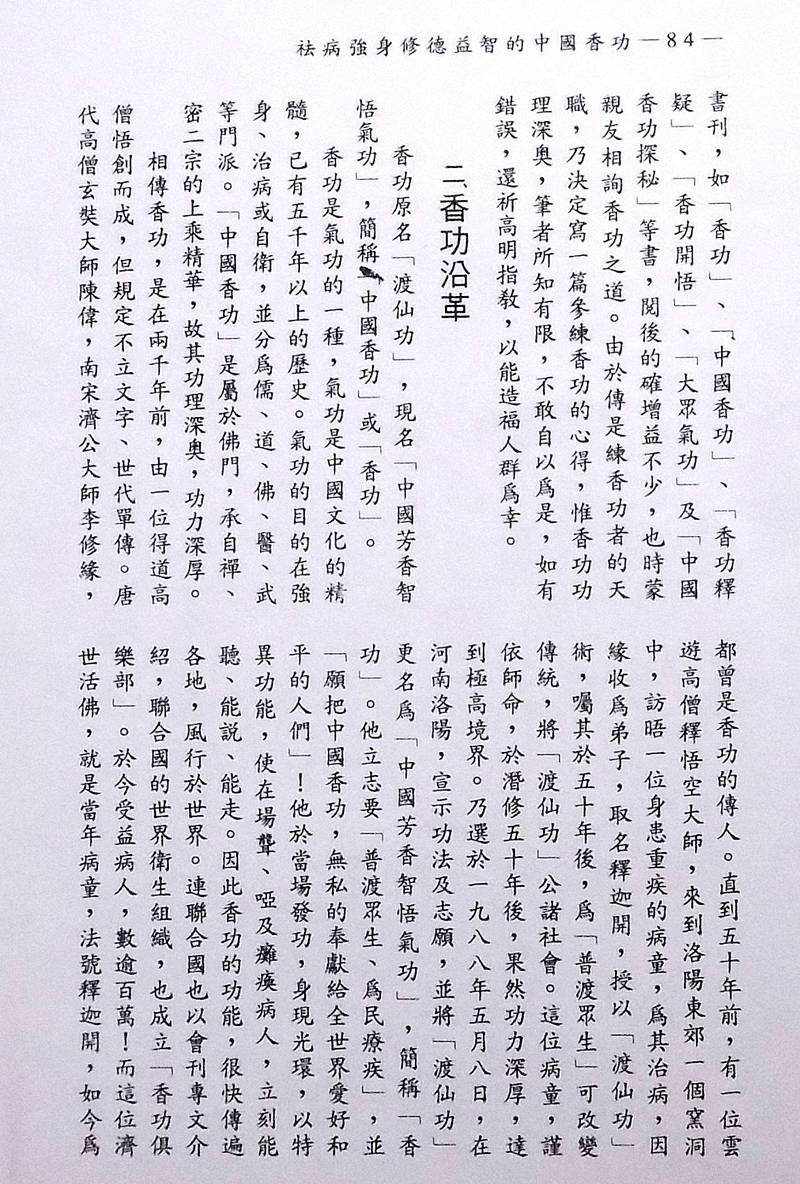 祛病強身修德益智的中國香功—84—
書刊，如「香功」、「中國香功」、「香功釋
疑」、「香功開悟」、「大眾氣功」及「中國
香功探秘」等書，閱後的確增益不少，也時蒙
親友相詢香功之道。由於傳是練香功者的天
職，乃決定寫一篇參練香功的心得，惟香功功
理深奧，筆者所知有限，不敢自以爲是，如有
錯誤，還祈高明指教，以能造福人群爲幸。
二、香功沿革
香功原名「渡仙功」，現名「中國芳香智
悟氣功」，簡稱「中國香功」或「香功」。
香功是氣功的一種，氣功是中國文化的精
髓，已有五千年以上的歷史。氣功的目的在強
身、治病或自衛，並分爲儒、道、佛、醫、武
等門派。「中國香功」是屬於佛門，承自禪、
密二宗的上乘精華，故其功理深奧，功力深厚。
相傳香功，是在兩千年前，由一位得道高
僧悟創而成，但規定不立文字、世代單傳。唐
代高僧玄奘大師陳偉，南宋濟公大師李修緣，
都曾是香功的傳人。直到五十年前，有一位雲
遊高僧釋悟空大師，來到洛陽東郊一個窯洞
中，訪晤一位身患重疾的病童，爲其治病，因
緣收爲弟子，取名釋迦開，授以「渡仙功」
術，囑其於五十年後，爲「普渡眾生」可改變
傳統，將「渡仙功」公諸社會。這位病童，謹
依師命，於潛修五十年後，果然功力深厚，達
到極高境界。乃選於一九八八年五月八日，在
河南洛陽，宣示功法及志願，並將「渡仙功」
更名爲「中國芳香智悟氣功」，簡稱「香
功」。他立志要「普渡眾生、爲民療疾」，並
「願把中國香功，無私的奉獻給全世界愛好和
平的人們」！他於當場發功，身現光環，以特
異功能，使在場聾、啞及癱瘓病人，立刻能
聽、能説、能走。因此香功的功能，很快傳遍
各地，風行於世界。連聯合國也以會刊專文介
紹，聯合國的世界衛生組織，也成立「香功俱
樂部」。於今受益病人，數逾百萬！而這位濟
世活佛，就是當年病童，法號釋迦開，如今爲